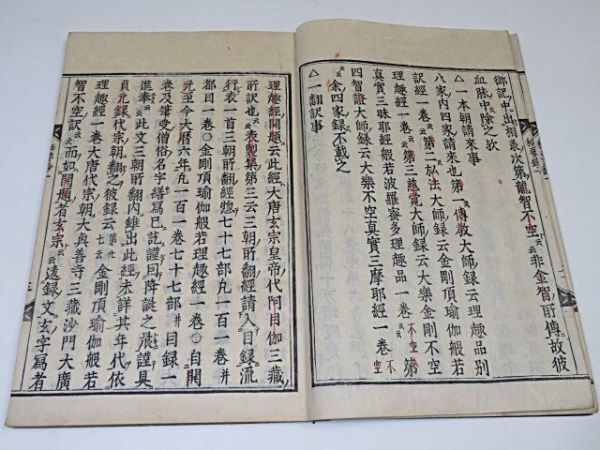 御記中出相承次第龍智不空云云非金智所傳故彼
血脉中除之欤
△一本朝請來事
八家内四家請來也第一傳教大師録云理趣品別
訳經一巻云云第二弘法大師録云金剛頂瑜伽般若
理趣經一巻云云第三慈覚大師録云大樂金剛不空
真實三昧耶經般若波羅蜜多理趣品一巻不空云云第
四智證大師録云大樂不空真實三摩耶經一巻不空
云云余四家録不載之
△一翻訳事
理趣經開題云此經大唐玄宗皇帝代阿目伽三藏
所訳也云云表製集第三云三朝所翻經請入目録流
行表一首三朝所翻經惣七十七部凢一百一巻并
都目一巻○金剛頂瑜伽般若理趣經一巻○自開
元至今大暦六年凢一百一巻七十七部并目録一
巻及筆受僧俗名字繕冩已訖謹囙降誕之辰謹具
進奉云云此文三朝所翻内雖出此經未詳其年代依
貞元録代宗朝翻之彼録云金剛頂瑜伽般若
理趣經一巻大唐代宗朝大興善寺三藏沙門大廣
智不空訳云云而如開題者玄宗云云遠録文玄字寫者